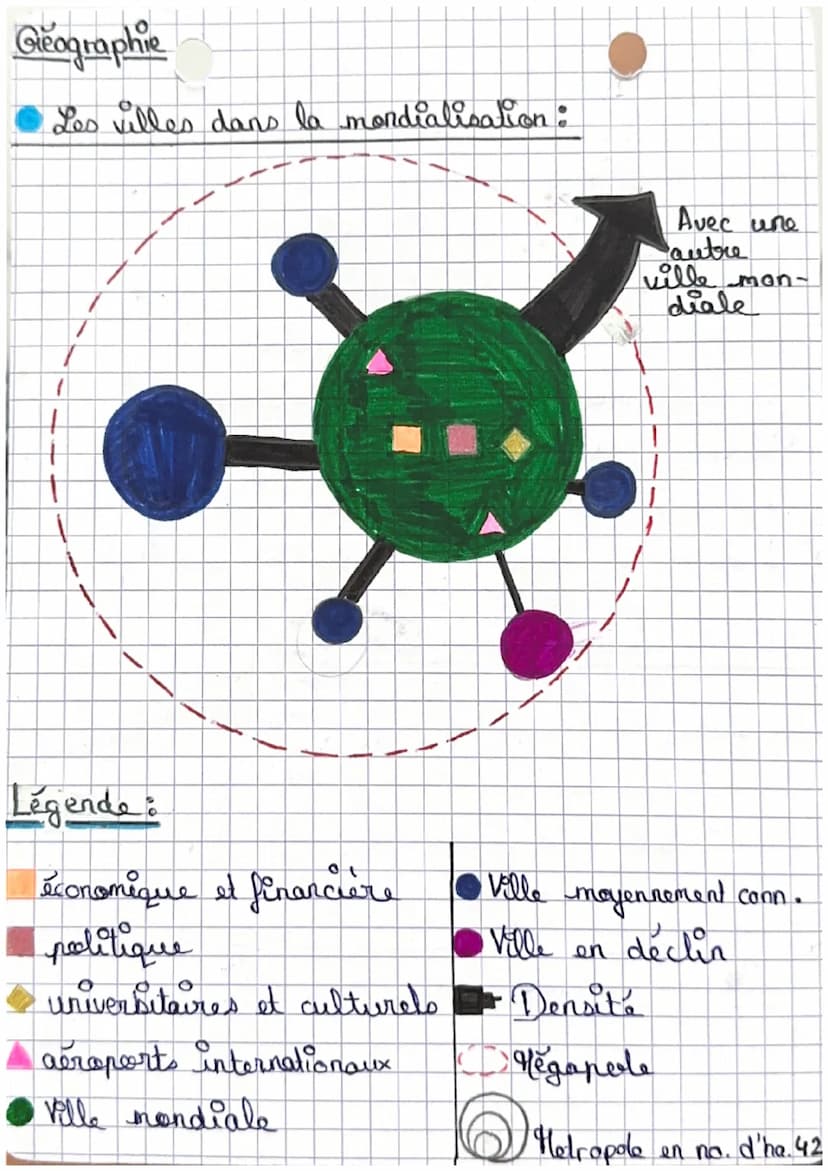 Géographie
Les villes dans la mondialisation :
Avec une
autre
ville mon-
diale
Légende :
économique et financière
politique
universitaires et culturels
aéroports internationaux
Ville mondiale
Ville moyennement conn.
Ville en déclin
Densité
Mégapole
Metropole en no. d'ha. 42